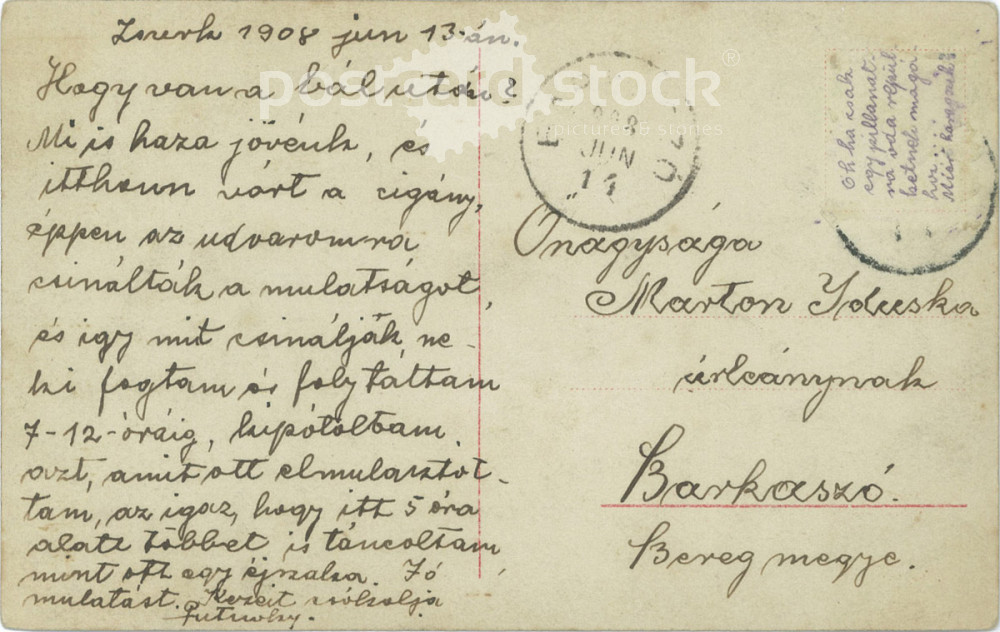 Zsurk 1908 jun 13-án.
Hogy van a bál után?
Mi is haza jövénk, és
itthoun várt a cigány,
éppen az udvaromra
csinálták a mulatságot,
és igy mit csinálják ne-
ki fogtam és folytattam
7-12-óráig, kipótoltam
azt, amit ott elmulasztot-
tam, az igaz, hogy itt 5 óra
alatt többet is táncoltam
mint ott egy éjszaka. Jó
mulatást. Kezeit csókolja
postcard stock
pictures & stories
908
JUN
14
Oh ha csak
egy pillanat-
ra oda repül-
hetnék magá
hoz.....
Misi haragszik?
Őnagysága
Marton Iduska
úrleánynak
Barkaszó.
Bereg megye.